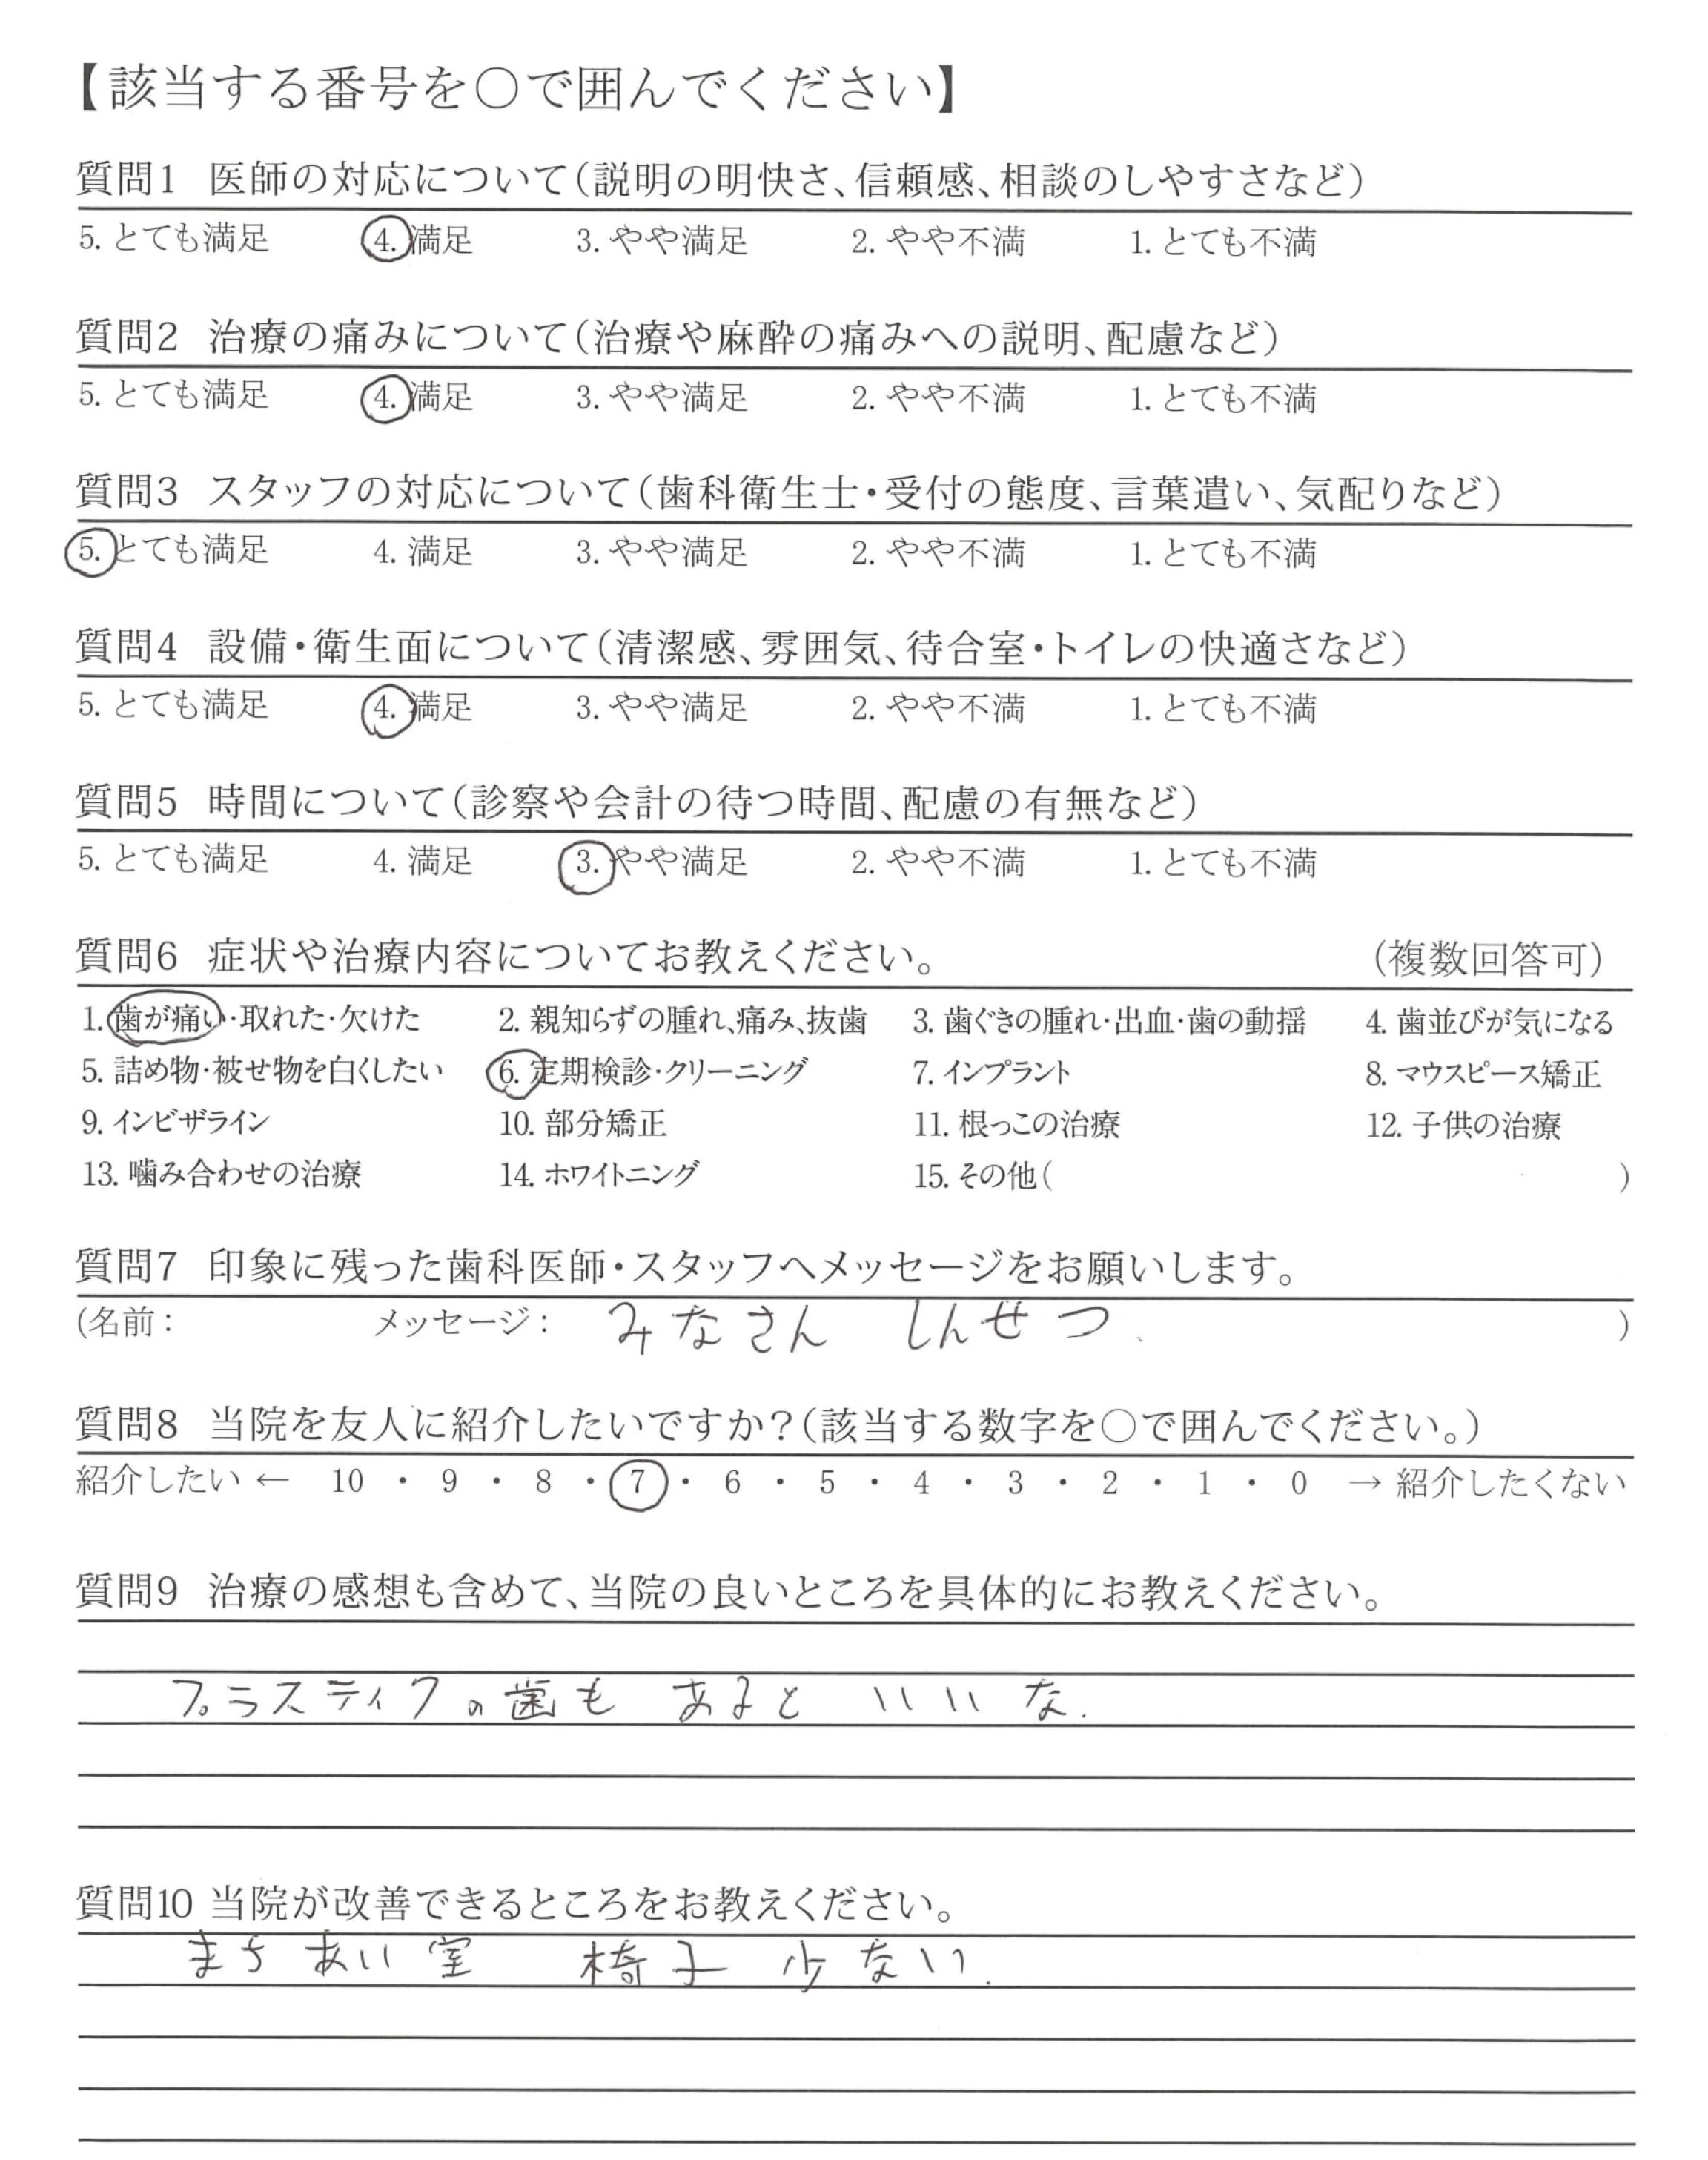 【該当する番号を○で囲んでください】
質問1 医師の対応について(説明の明快さ、信頼感、相談のしやすさなど)
5. とても満足 4. 満足 3. やや満足 2. やや不満 1. とても不満
質問2 治療の痛みについて(治療や麻酔の痛みへの説明、配慮など)
5. とても満足 4. 満足 3. やや満足 2. やや不満 1. とても不満
質問3 スタッフの対応について(歯科衛生士・受付の態度、言葉遣い、気配りなど)
5. とても満足 4. 満足 3. やや満足 2. やや不満 1. とても不満
質問4 設備・衛生面について(清潔感、雰囲気、待合室・トイレの快適さなど)
5. とても満足 4. 満足 3. やや満足 2. やや不満 1. とても不満
質問5 時間について(診察や会計の待つ時間、配慮の有無など)
5. とても満足 4. 満足 3. やや満足 2. やや不満 1. とても不満
質問6 症状や治療内容についてお教えください。 (複数回答可)
1. 歯が痛い・取れた・欠けた 2. 親知らずの腫れ、痛み、抜歯 3. 歯ぐきの腫れ・出血・歯の動揺 4. 歯並びが気になる
5. 詰め物・被せ物を白くしたい 6. 定期検診・クリーニング 7. インプラント 8. マウスピース矯正
9. インビザライン 10. 部分矯正 11. 根っこの治療 12. 子供の治療
13. 噛み合わせの治療 14. ホワイトニング 15. その他( )
質問7 印象に残った歯科医師・スタッフへメッセージをお願いします。
(名前: メッセージ: みなさん しんせつ )
質問8 当院を友人に紹介したいですか?(該当する数字を○で囲んでください。)
紹介したい ← 10 ・ 9 ・ 8 ・ 7 ・ 6 ・ 5 ・ 4 ・ 3 ・ 2 ・ 1 ・ 0 → 紹介したくない
質問9 治療の感想も含めて、当院の良いところを具体的にお教えください。
プラスティクの歯も あると いいな.
質問10 当院が改善できるところをお教えください。
まちあい室 椅子 少ない.